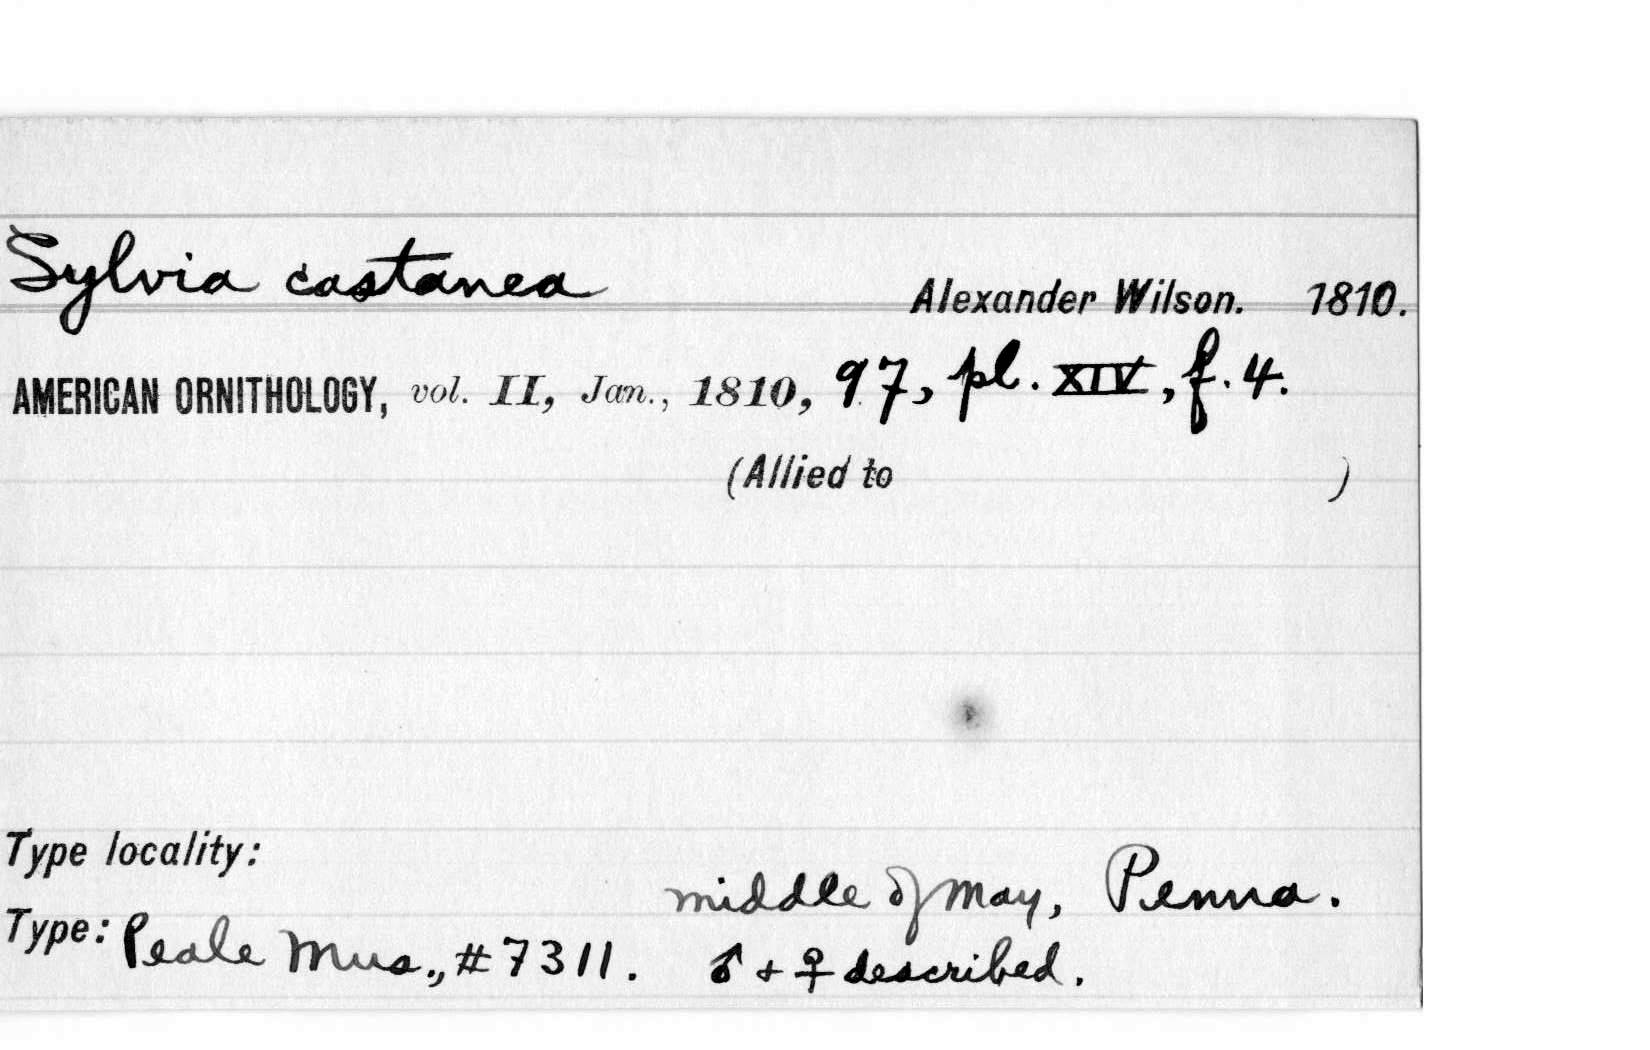 Sylvia castanea Alexander Wilson. 1810.
AMERICAN ORNITHOLOGY, vol. II, Jan., 1810, 97, pl. XIV, f. 4.
(Allied to )
Type locality:
middle of May, Penna.
Type: Peale Mus., #7311. ♂ + ♀ described.